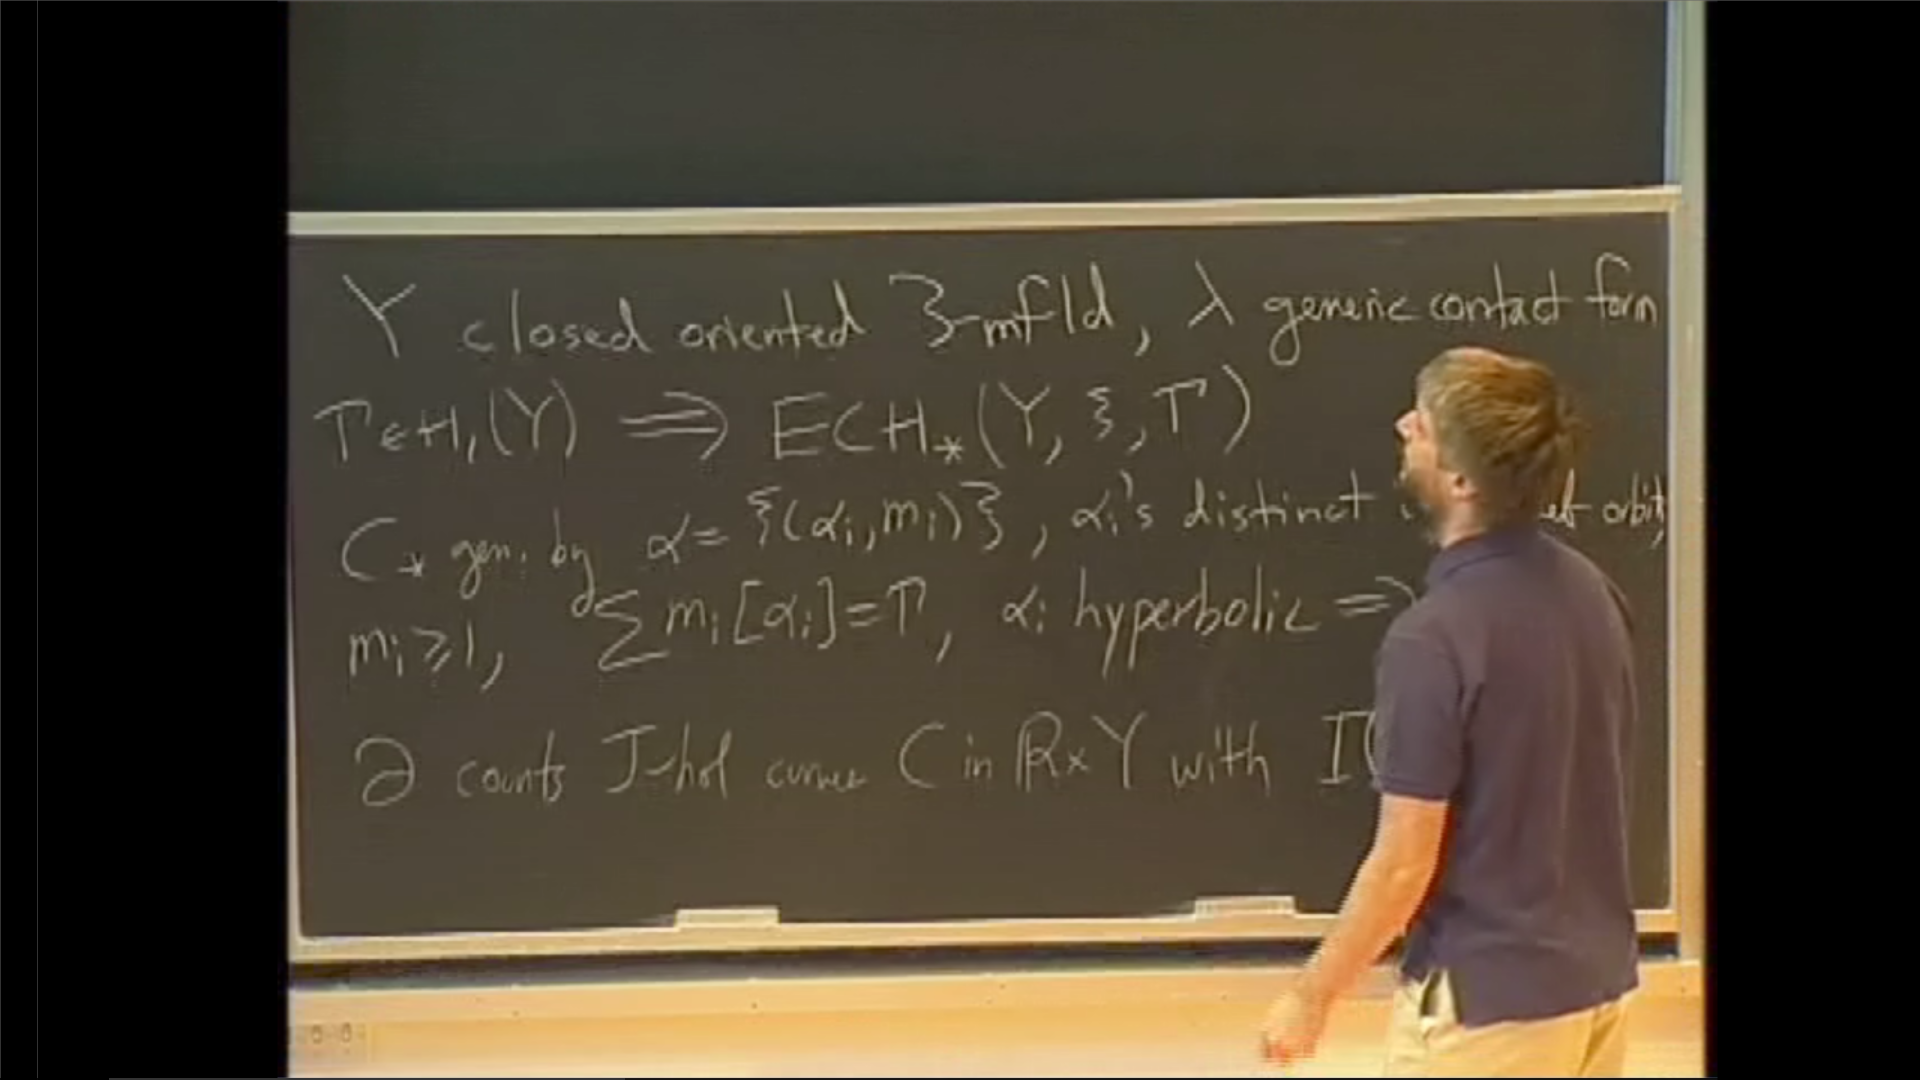 Y closed oriented 3-mfld, λ generic contact form
Γ∈H₁(Y) ⇒ ECH_*(Y, ξ, Γ)
C_* gen. by α = {(αᵢ, mᵢ)}, αᵢ's distinct orbits
mᵢ ≥ 1, Σ mᵢ[αᵢ] = Γ, αᵢ hyperbolic ⇒
∂ counts J-hol curves C in ℝ×Y with I(